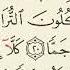 كُلُونَ التُّرَا
جَمًّا ٢٠ كَلَّآ